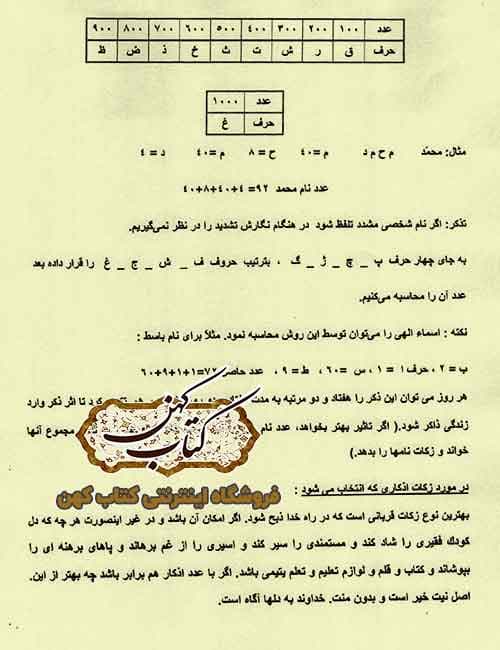 عدد ۱۰۰ ۲۰۰ ۳۰۰ ۴۰۰ ۵۰۰ ۶۰۰ ۷۰۰ ۸۰۰ ۹۰۰
حرف ق ر ش ت ث خ ذ ض ظ
عدد ۱۰۰۰
حرف غ
مثال: محمّد م ح م د م =۴۰ ح = ۸ م =۴۰ د = ۴
عدد نام محمد ۹۲ =۴+۴۰+۸+۴۰
تذکر: اگر نام شخصی مشدد تلفظ شود در هنگام نگارش تشدید را در نظر نمی‌گیریم.
به جای چهار حرف پ _ چ _ ژ _ گ ، بترتیب حروف ف _ ش _ ج _ غ را قرار داده بعد
عدد آن را محاسبه می‌کنیم.
نکته : اسماء الهی را می‌توان توسط این روش محاسبه نمود. مثلاً برای نام باسط :
ب = ۲ ، حرف ا = ۱ ، س =۶۰ ، ط = ۹ ، عدد حاصل ۷۲=۱+۱+۹+۶۰
هر روز می توان این ذکر را هفتاد و دو مرتبه به مدت تا اثر ذکر وارد
زندگی ذاکر شود.( اگر تاثیر بهتر بخواهد، عدد نام مجموع آنها
خواند و زکات نامها را بدهد.)
کتاب کهن
فروشگاه اینترنتی کتاب کهن
در مورد زکات اذکاری که انتخاب می شود :
بهترین نوع زکات قربانی است که در راه خدا ذبح شود. اگر امکان آن باشد و در غیر اینصورت هر چه که دل
کودک فقیری را شاد کند و مستمندی را سیر کند و اسیری را از غم برهاند و پاهای برهنه ای را
بپوشاند و کتاب و قلم و لوازم تعلیم و تعلم یتیمی باشد. اگر با عدد اذکار هم برابر باشد چه بهتر از این.
اصل نیت خیر است و بدون منت. خداوند به دلها آگاه است.